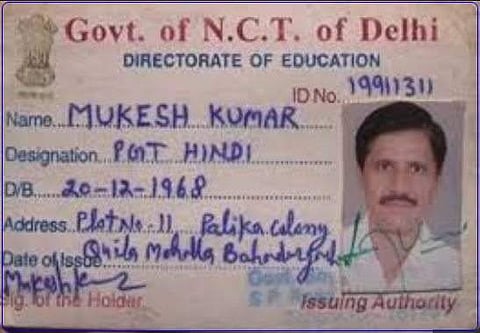 Govt. of N.C.T. of Delhi
DIRECTORATE OF EDUCATION
ID No. 19911311
Name...MUKESH KUMAR
Designation...PGT HINDI
D/B...20-12-1968
Address...Plot No-11, Palika Colony
Date of Issue Quila Moholla Bahadurgarh
Mukesh
Sig. of the Holder.
Issuing Authority